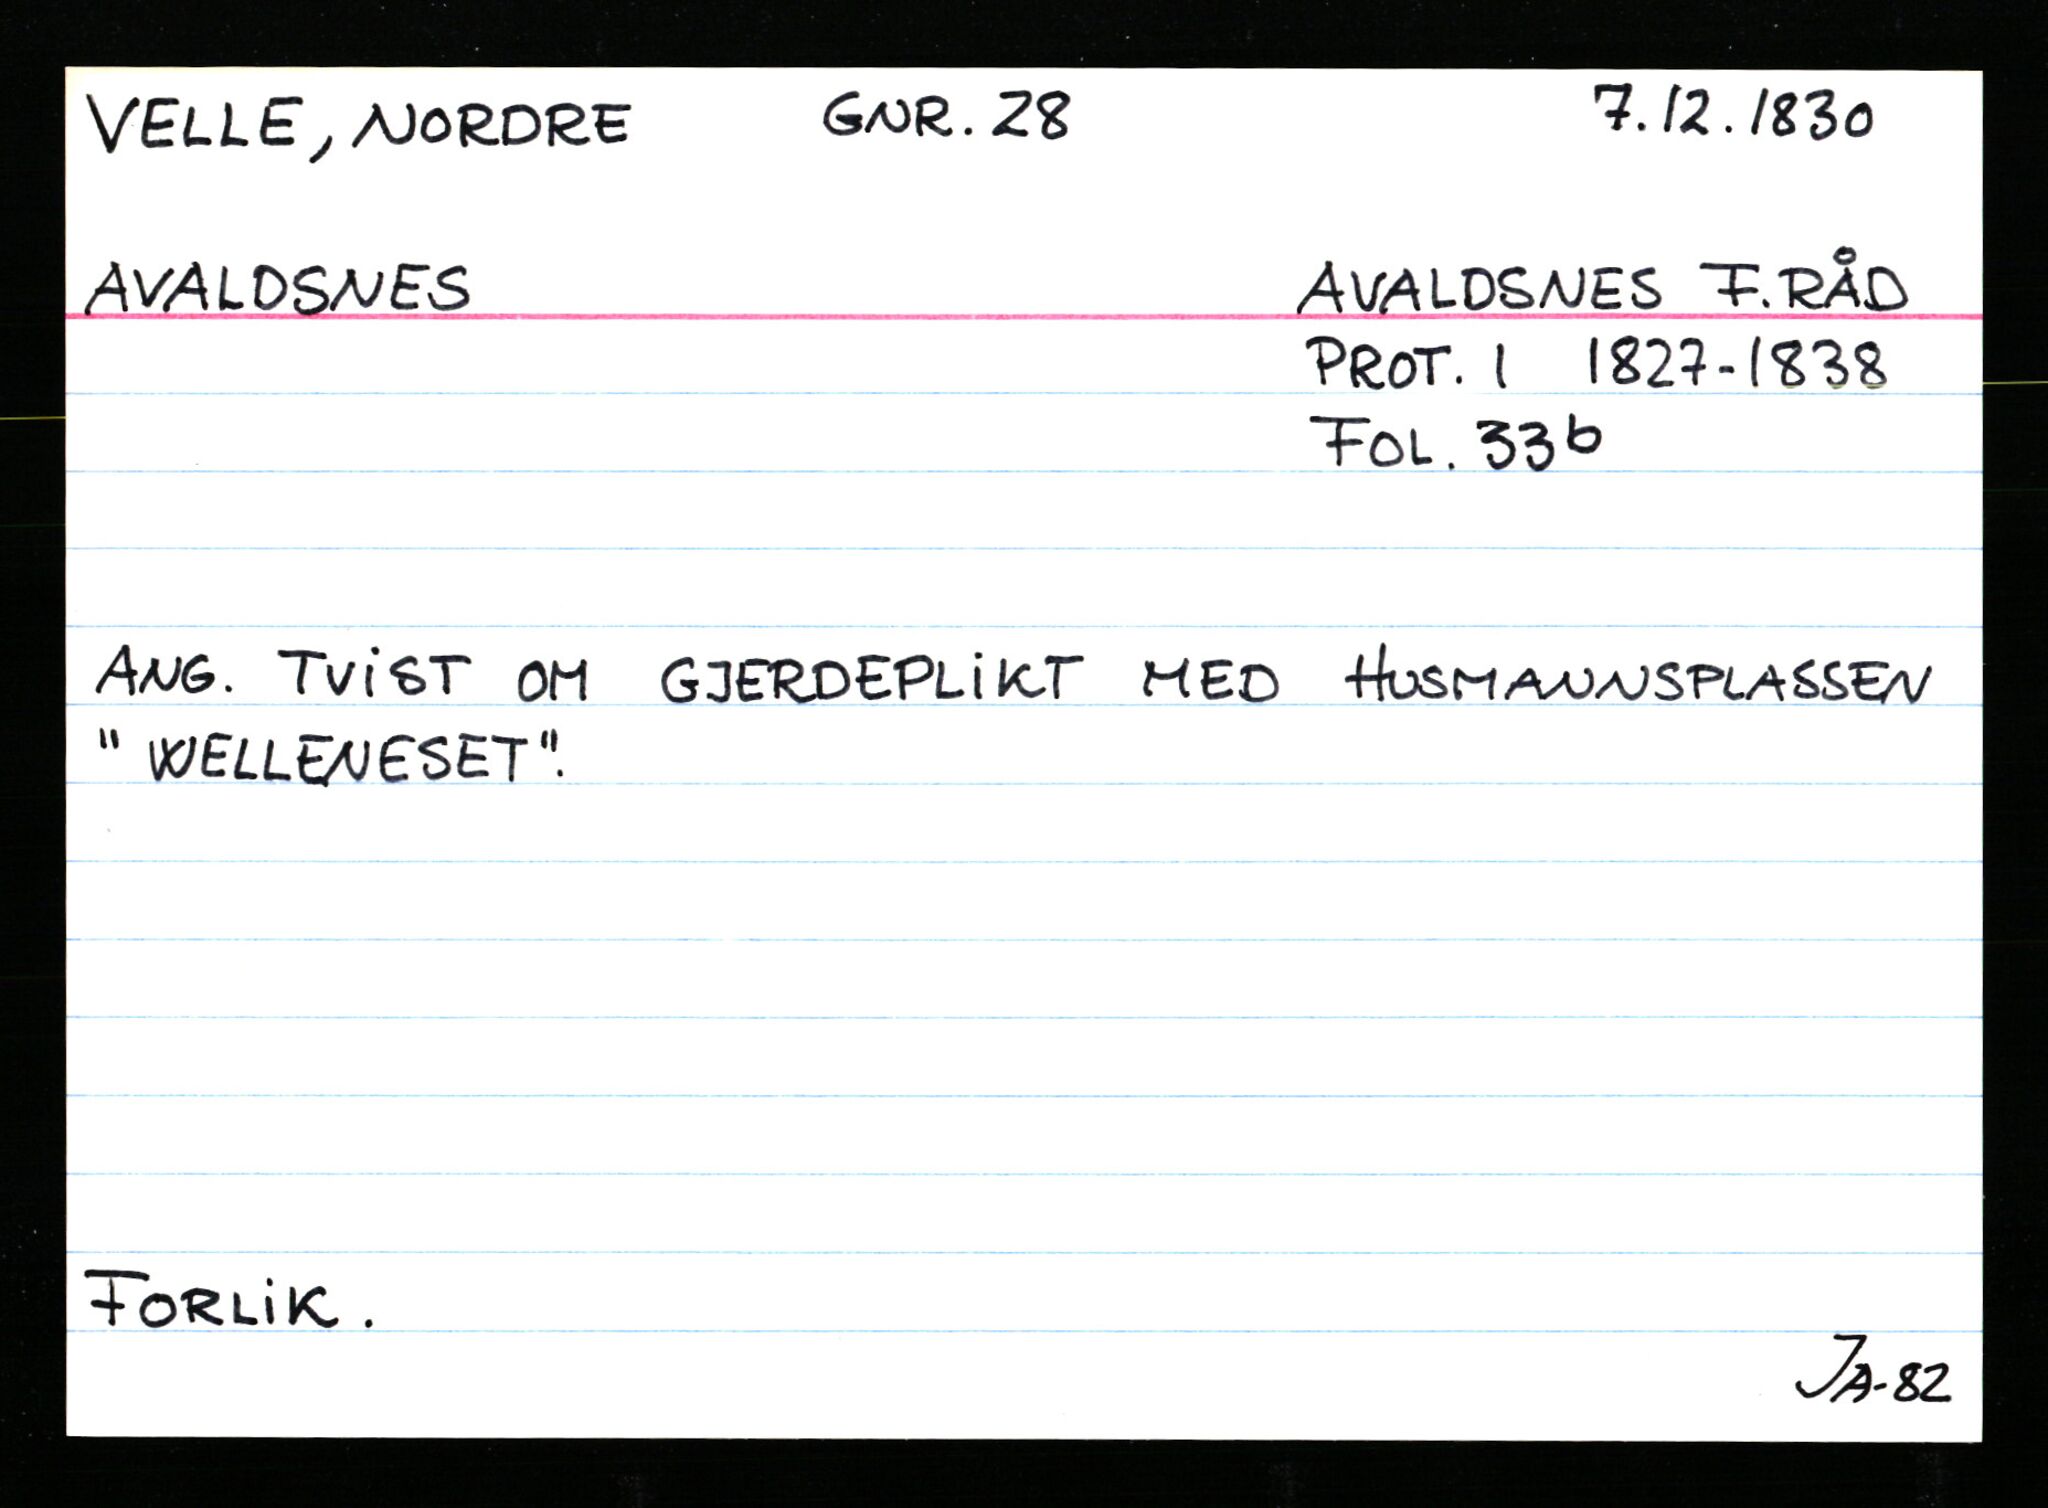 VELLE, NORDRE GNR. 28 7.12.1830
AVALDSNES AVALDSNES F.RÅD
PROT. 1 1827-1838
FOL. 33b
ANG. TViST OM GJERDEPLiKT MED HUSMANNSPLASSEN
"WELLENESET".
FORLiK.
JA-82